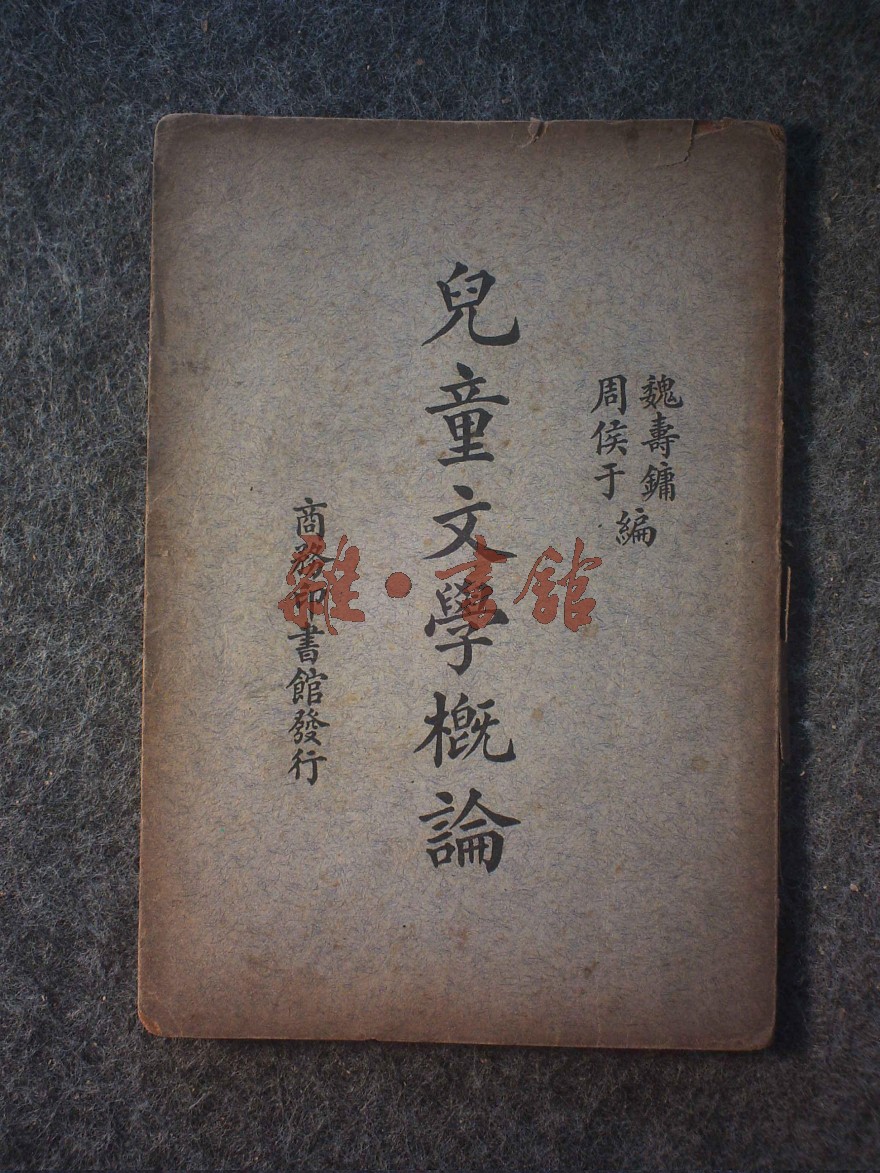 魏壽鏞
周侯于
編
兒童文學概論
商務印書館發行
雜·書館